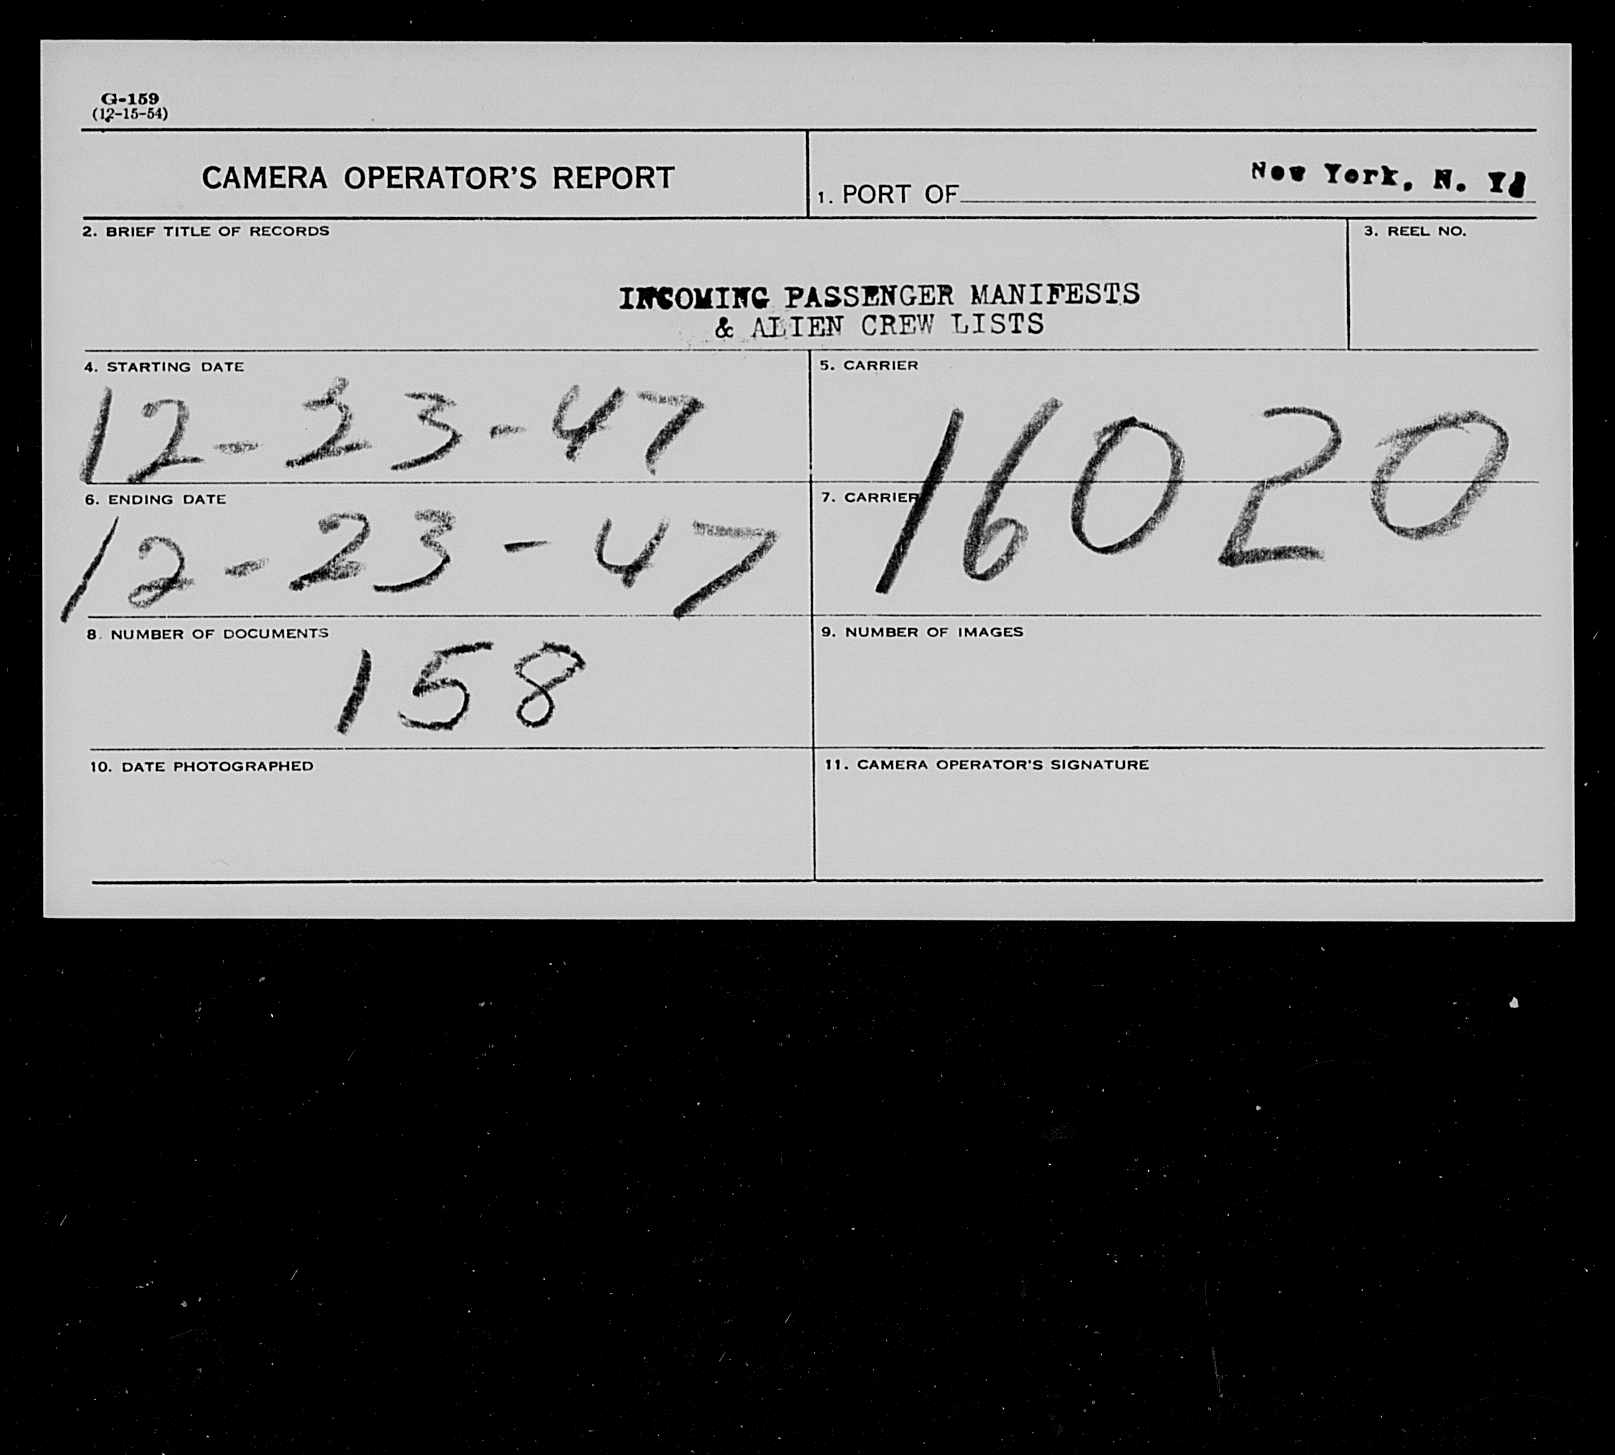 G-159
(12-15-54)
CAMERA OPERATOR'S REPORT
1. PORT OF New York, N. Y.
2. BRIEF TITLE OF RECORDS
3. REEL NO.
INCOMING PASSENGER MANIFESTS
& ALIEN CREW LISTS
4. STARTING DATE
12-23-47
5. CARRIER
16020
6. ENDING DATE
12-23-47
7. CARRIER
8. NUMBER OF DOCUMENTS
158
9. NUMBER OF IMAGES
10. DATE PHOTOGRAPHED
11. CAMERA OPERATOR'S SIGNATURE